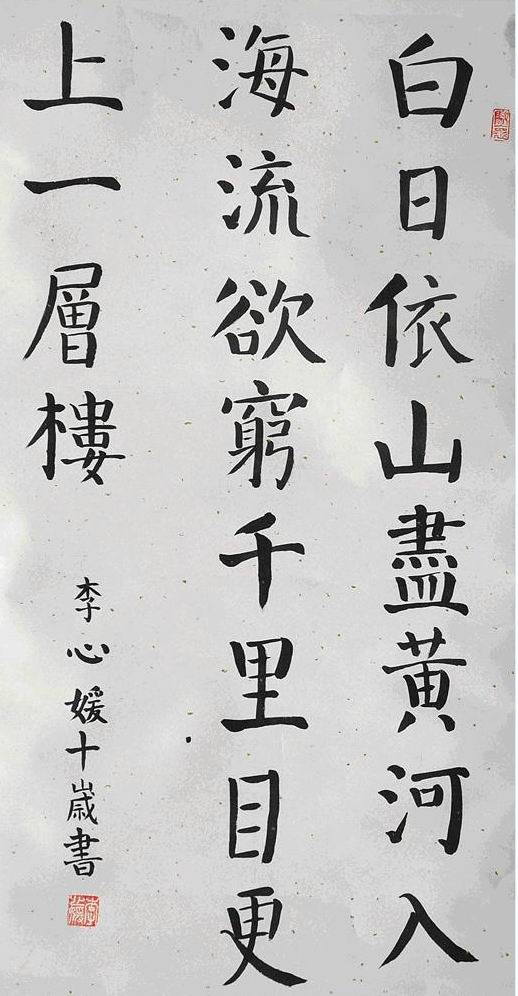 白日依山盡黃河入
海流欲窮千里目更
上一層樓
李心媛十歲書